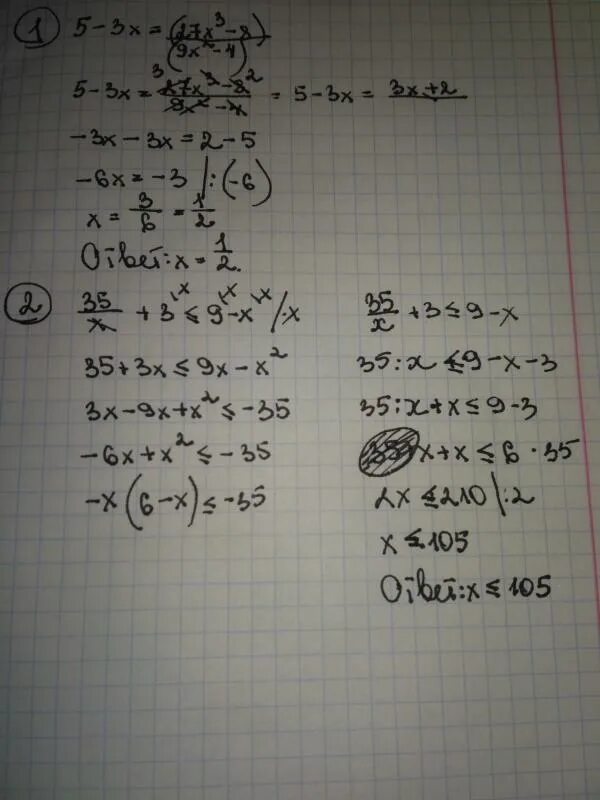 1) 5-3x = (27x³-8)/(9x²-4)
5-3x = 27x³-8/9x²-4 = 5-3x = 3x+2
3 2
-3x-3x=2-5
-6x=-3 |:(-6)
x = 3/6 = 1/2
Ответ: x = 1/2.
2) 35/x + 3 ≤ 9-x /·x
x x x
35+3x ≤ 9x-x²
3x-9x+x² ≤ -35
-6x+x² ≤ -35
-x(6-x) ≤ -35
35/x +3 ≤ 9-x
35:x ≤ 9-x-3
35:x+x ≤ 9-3
x+x ≤ 6·35
2x ≤ 210 |:2
x ≤ 105
Ответ: x ≤ 105